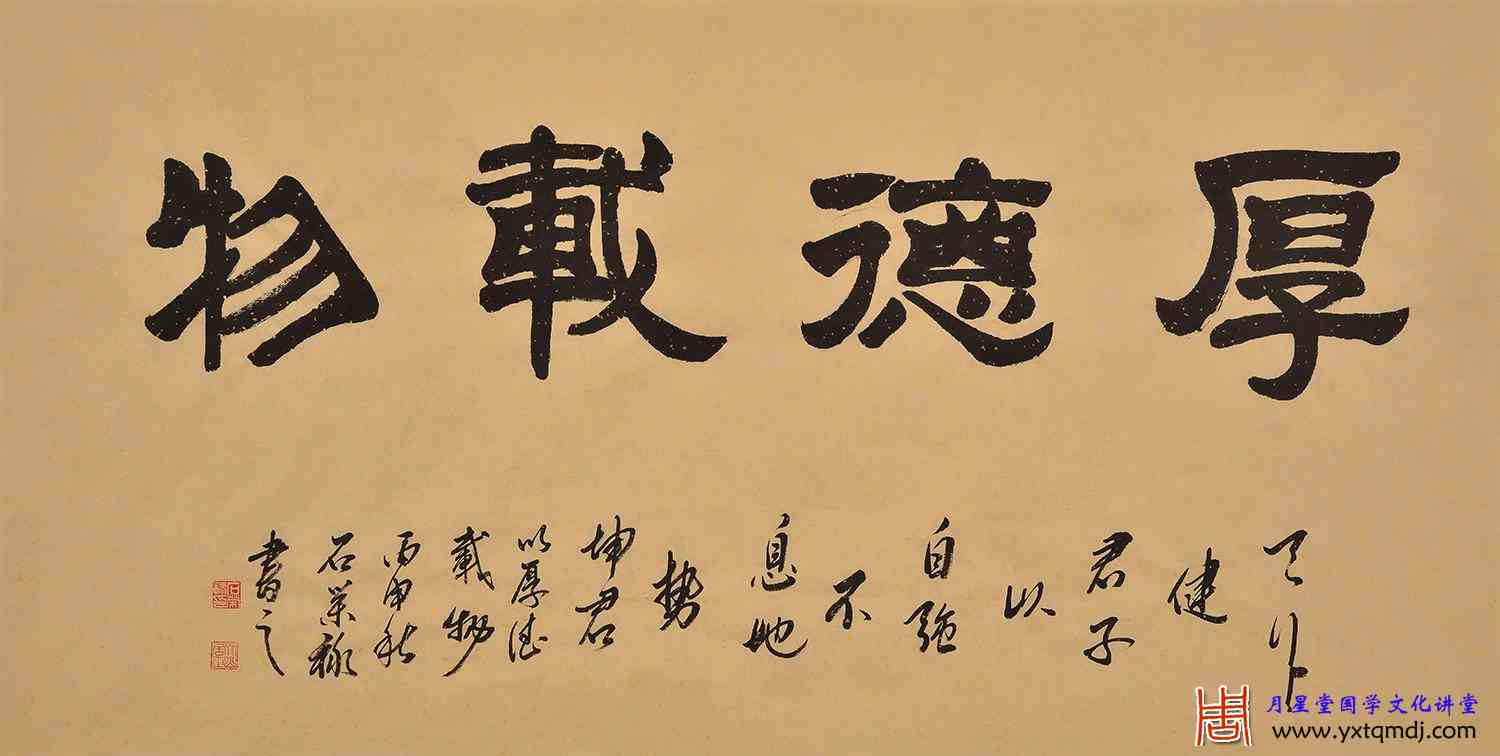 厚德載物
天行
健
君子
以
自強
不
息地
勢
坤君
以厚德
載物
丙申秋
石
書之
月星堂国学文化讲堂
www.yxtqmdj.com